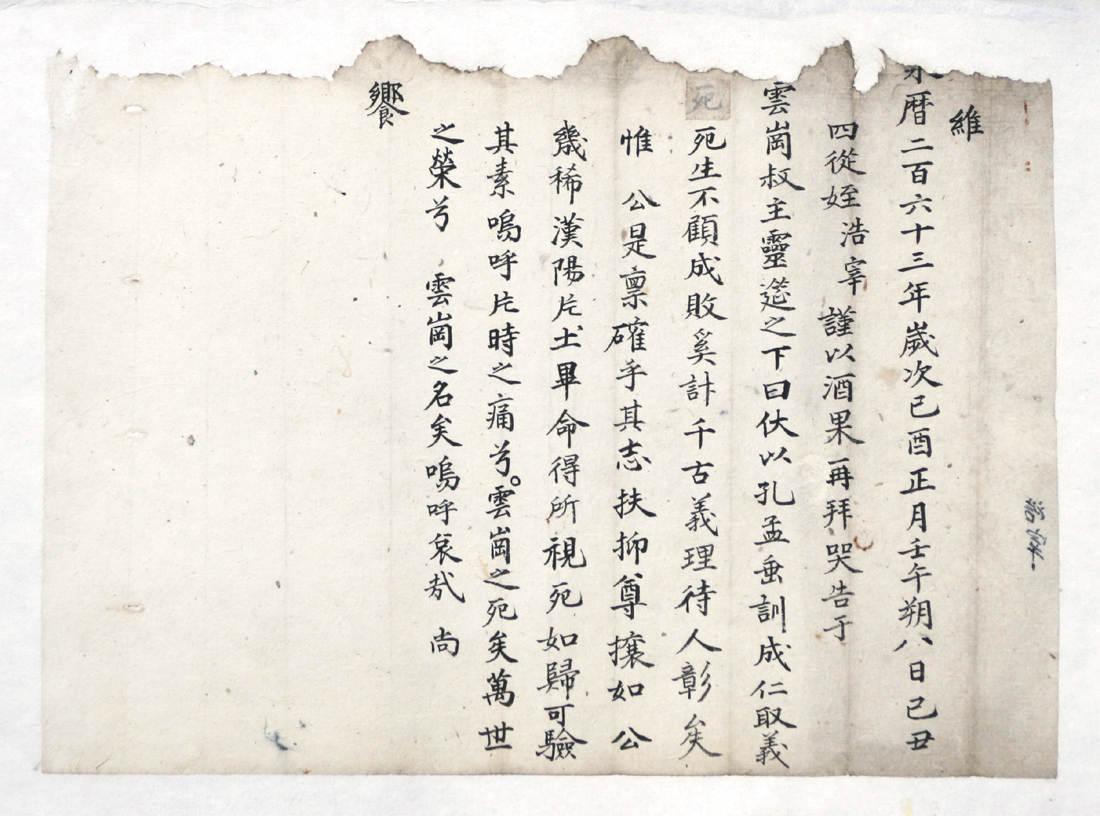 維
永暦二百六十三年歲次己酉正月壬午朔八日己丑
四從姪浩宰謹以酒果再拜哭告于
雲崗叔主靈筵之下曰伏以孔孟垂訓成仁取義
死
死生不顧成敗奚計千古義理待人彰矣
惟 公是禀確乎其志扶抑尊攘如公
幾稀漢陽片土畢命得所視死如歸可驗
其素嗚呼片時之痛兮。雲崗之死矣萬世
之榮兮 雲崗之名矣嗚呼哀哉 尚
饗